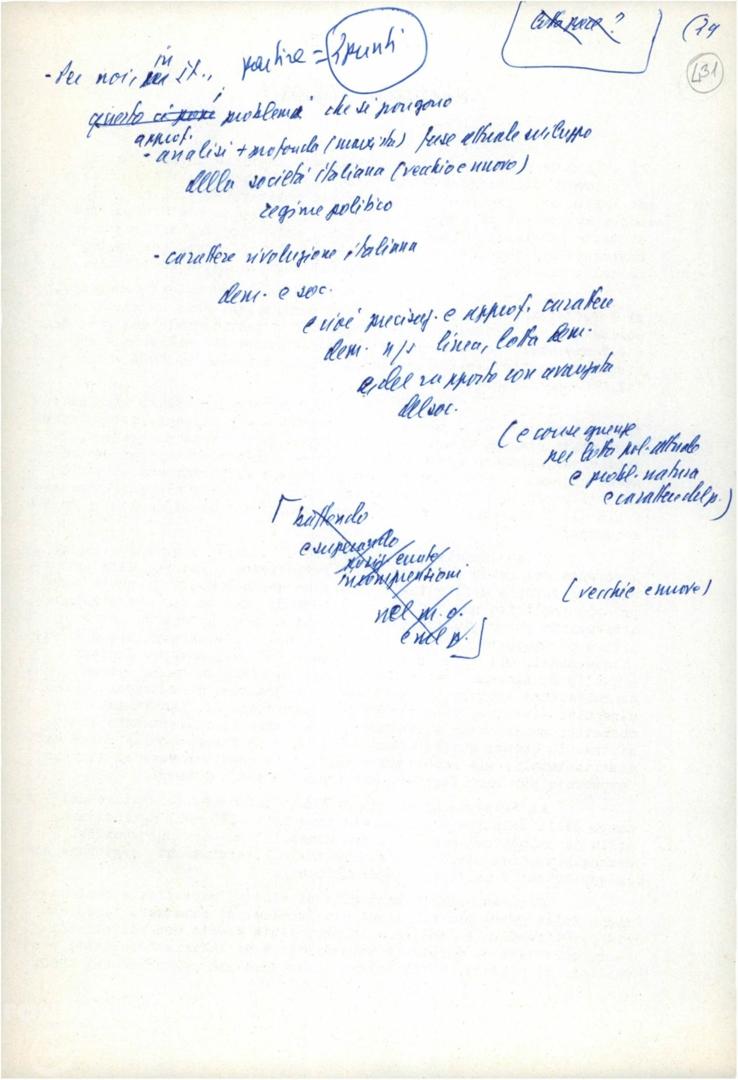 Lotta pace? (74
431
- Per noi, in It., partire = 2 punti
questo ci pone problemi che si pongono
approf.
- analisi + profonda (marxista) fase attuale sviluppo
della società italiana (vecchio e nuovo)
regime politico
- carattere rivoluzione italiana
dem. e soc.
e cioè precisaz. e approf. carattere
dem. n/s linea, lotta dem.
e del rapporto con avanzata
del soc.
(e conseguenze
per lotta pol. attuale
e probl. natura
e carattere del p.)
[battendo
e superando
incomprensioni
(vecchie e nuove)
nel m.o.
e nel p.]